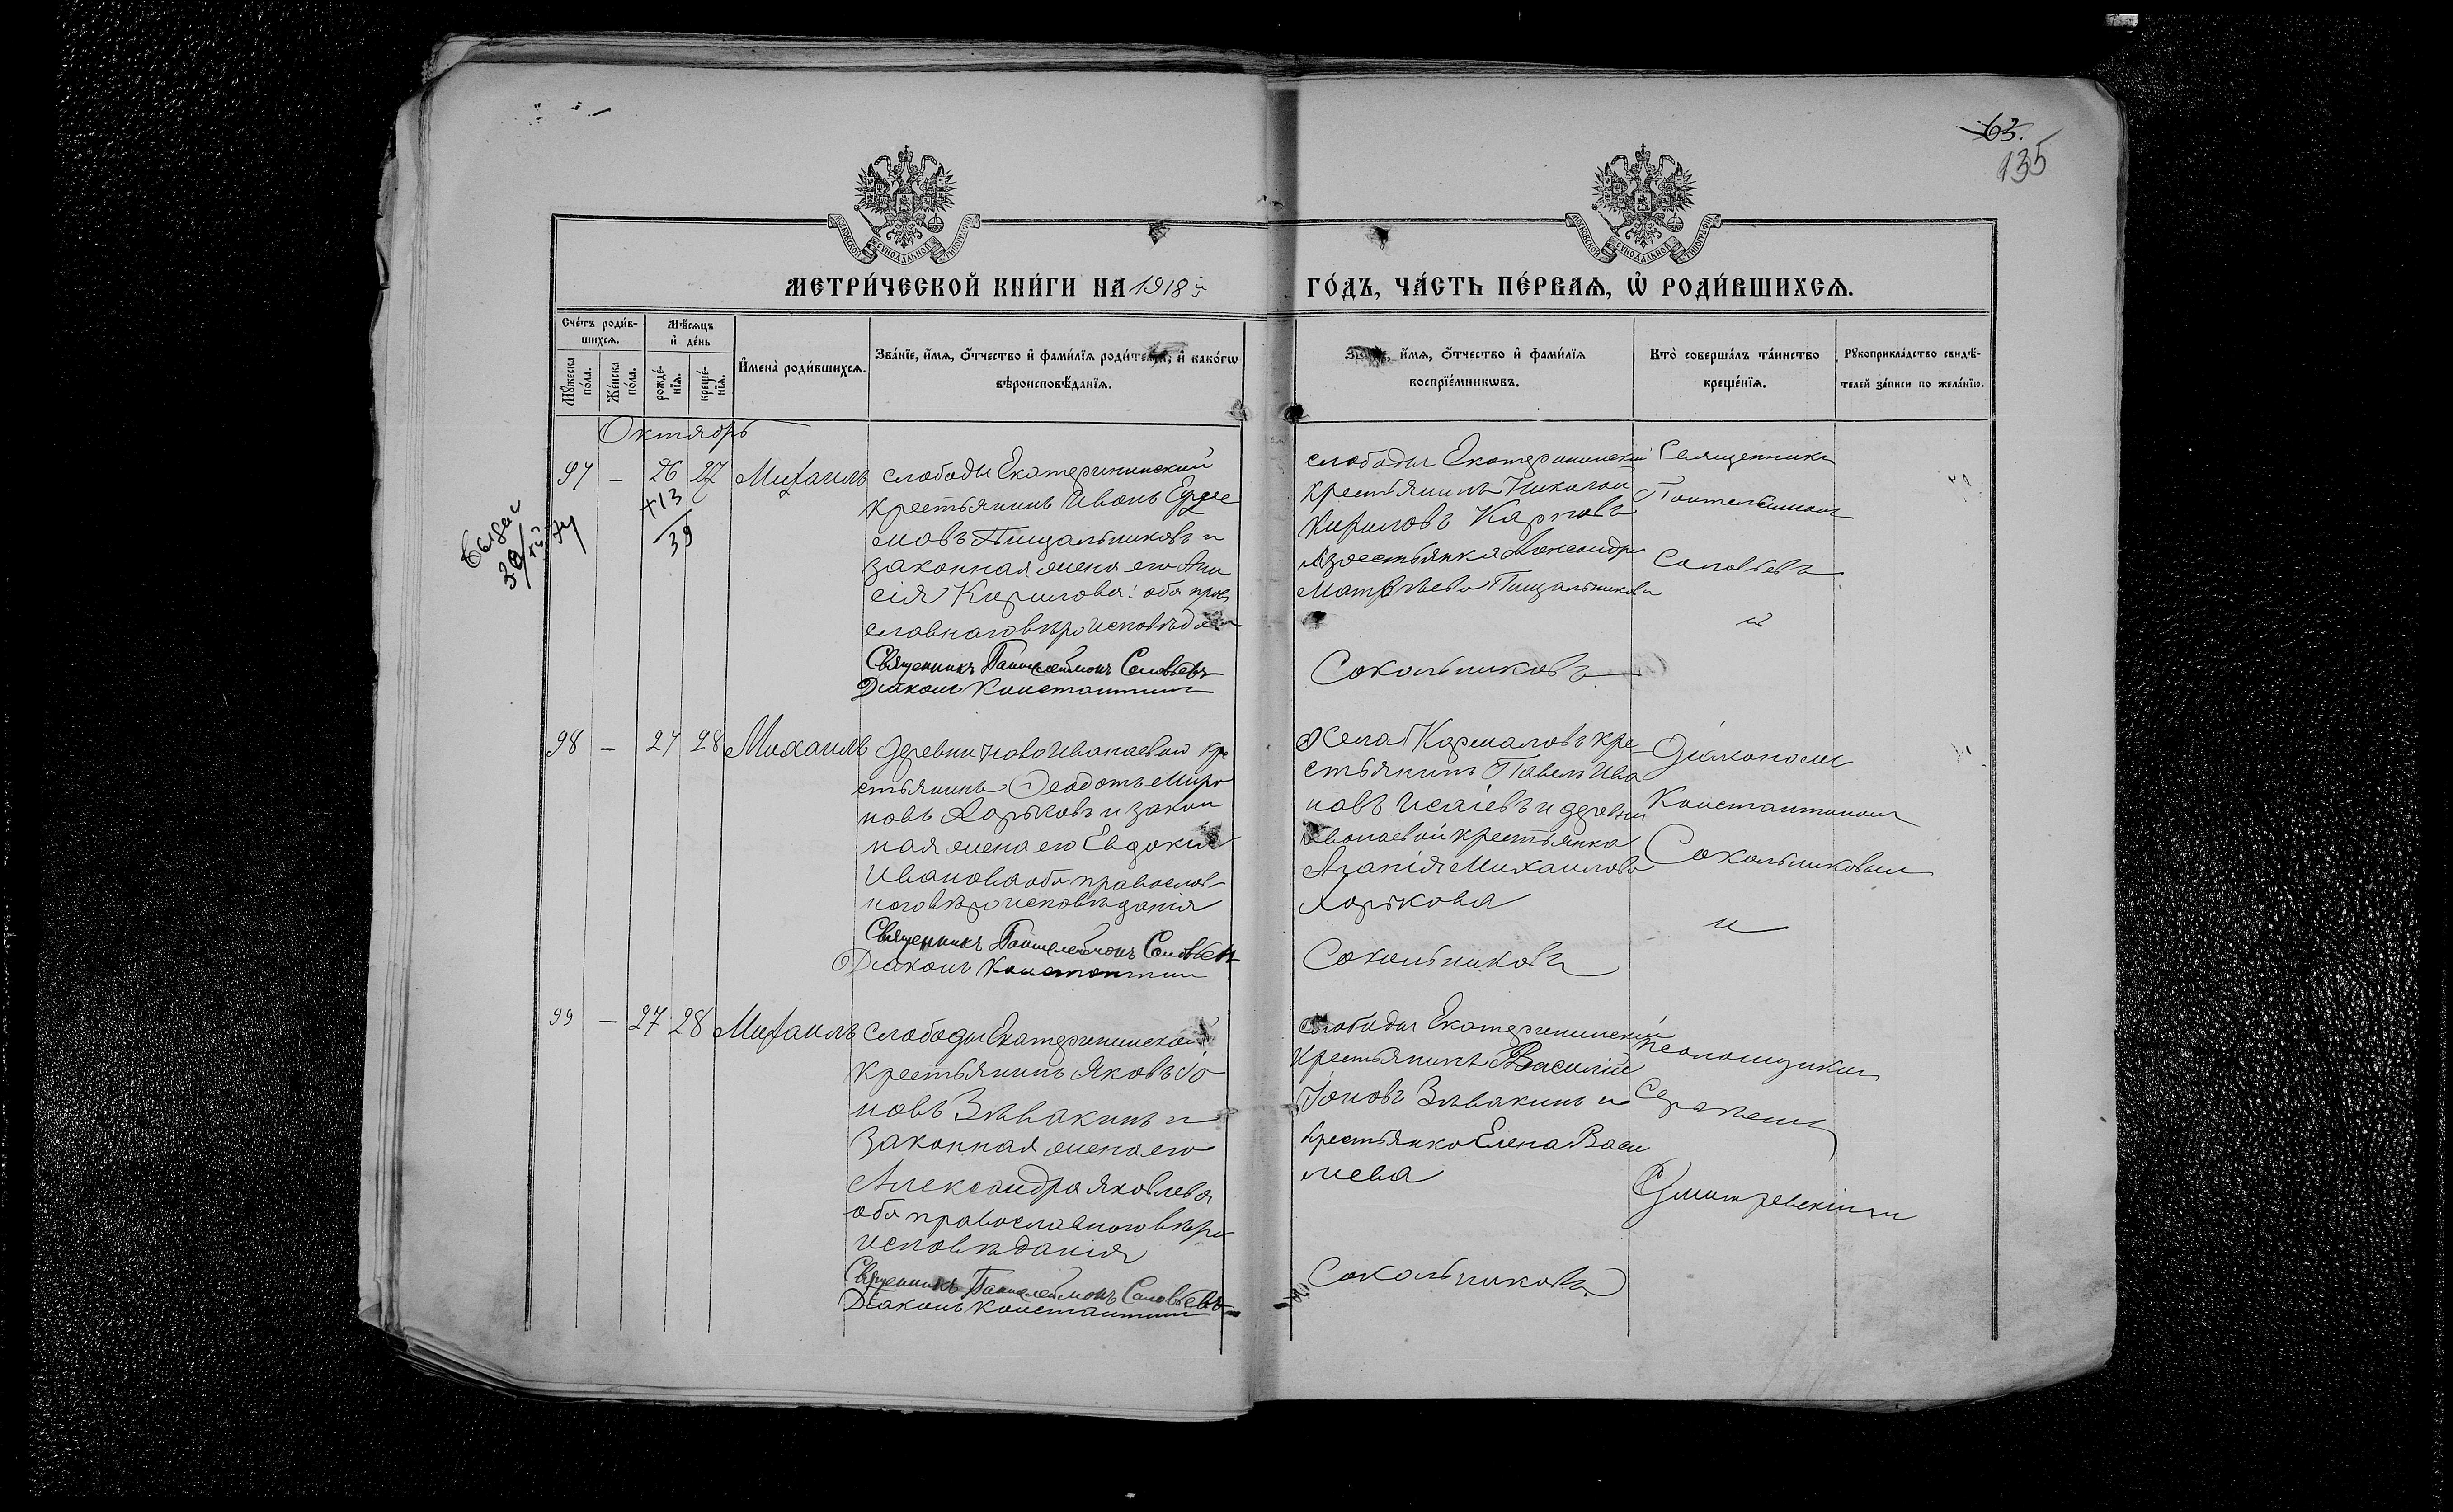 63.
135
МОСКОВСКОЙ СѴНОДАЛЬНОЙ ТИПОГРАФІИ
МОСКОВСКОЙ СѴНОДАЛЬНОЙ ТИПОГРАФІИ
МЕТРИ́ЧЕСКОЙ КНИ́ГИ НА 1918 й
ГО́ДЪ, ЧА́СТЬ ПЕ́РВАѦ, Ѡ҆ РОДИ́ВШИХСѦ.
Сче́тъ роди́в-
шихсѧ.
Мꙋ́жеска
по́ла.
Же́нска
по́ла.
Мѣ́сѧцъ
и҆ де́нь
рожде́-
нїѧ.
креще́-
нїѧ.
И҆мена̀ роди́вшихсѧ.
Зва́нїе, и҆́мѧ, ѻ҆́тчество и҆ фами́лїѧ роди́телей, и҆ како́гѡ
вѣроисповѣ́данїѧ.
и҆́мѧ, ѻ҆́тчество и҆ фами́лїѧ
воспрїе́мникѡвъ.
Кто̀ соверша́лъ та́инство
креще́нїѧ.
Рꙋкоприкла́дство свидѣ́-
телей за́писи по жела́нїю.
Октябрь
97 – 26 27 Михаилъ
+13
39
слободы Екатерининской
крестьянинъ Иванъ
мовъ Пищальниковъ и
законная жена его Ани
сія Кирилова: оба прав
славнаго вѣроисповѣда
Священникъ Пантелеймонъ Соловьевъ
Діаконъ Константинъ
слободы Екатерининской
крестьянинъ Николай
Кириловъ Карповъ
крестьянка Александра
Матвѣева Пищальникова
Сокольниковъ
Священникъ
Пантелеимонъ
Соловьевъ
и
98 – 27 28 Михаилъ
деревни Ново Иванаевой кре
стьянинъ Ѳеодотъ Миро
новъ Хорьковъ и закон
ная жена его Евдокія
Иванова оба православ-
наго вѣроисповѣданія
Священникъ Пантелеймонъ Соловьевъ
Діаконъ Константинъ
Села Кармаловъ кре
стьянинъ Павелъ Ива
новъ Исаіевъ и деревни
Иванаевой крестьянка
Агапія Михаилова
Хорькова
Сокольниковъ
Діакономъ
Константиномъ
Сокольниковым
и
99 – 27 28 Михаилъ
слободы Екатерининской
крестьянинъ Яковъ Іо
новъ Зѣвакинъ и
законная жена его
Александра Яковлева
оба православного вѣро
исповѣданія
Священникъ Пантелеймонъ Соловьевъ
Діаконъ Константинъ
слободы Екатерининской
крестьянинъ Василій
Іоновъ Зѣвакинъ и
крестьянка Елена Васи
лиева
Сокольниковъ
Псаломщикъ